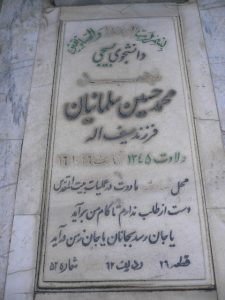 دانشجوی بسیجی
شهید
محمدحسین سلمانیان
فرزند سیف اله
ولادت ۱۳۴۵
محل شهادت در عملیات بیت المقدس
دست از طلب ندارم تا کام من برآید
یا جان رسد بجانان یا جان ز تن درآید
قطعه ۲۶ ردیف ۶۲ شماره ۵۲